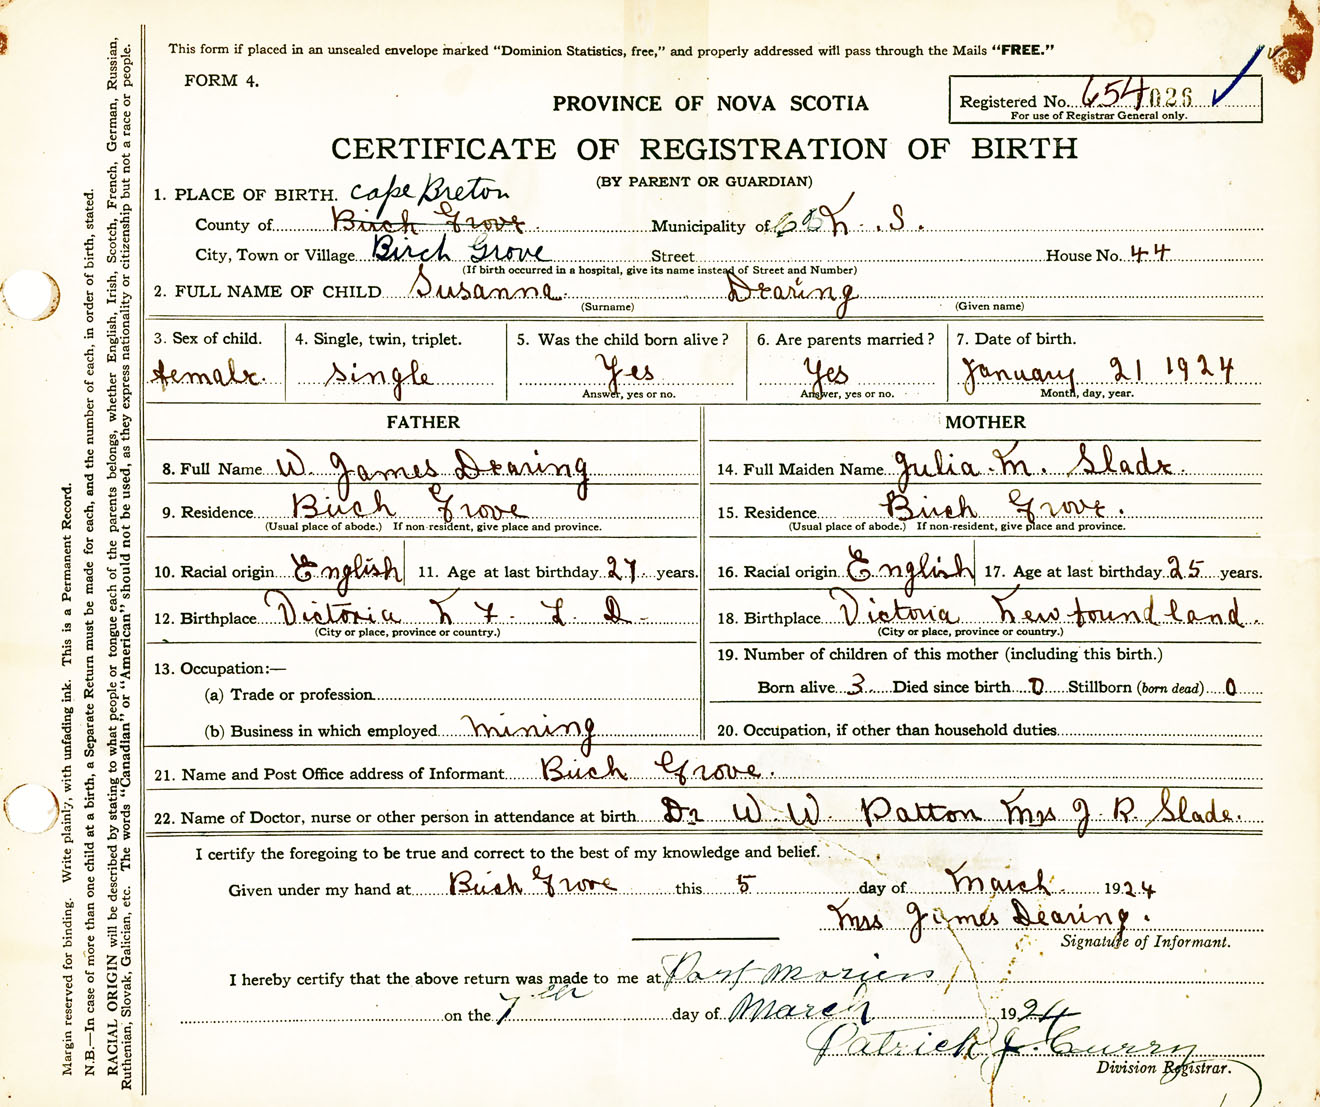 This form if placed in an unsealed envelope marked "Dominion Statistics, free," and properly addressed will pass through the Mails "FREE."
FORM 4.
Registered No. 654 026
For use of Registrar General only.
PROVINCE OF NOVA SCOTIA
CERTIFICATE OF REGISTRATION OF BIRTH
(BY PARENT OR GUARDIAN)
1. PLACE OF BIRTH. Cape Breton
County of Birch Grove Municipality of N. S.
City, Town or Village Birch Grove Street House No. 44
(If birth occurred in a hospital, give its name instead of Street and Number)
2. FULL NAME OF CHILD Susanna Dearing
(Surname) (Given name)
3. Sex of child. 4. Single, twin, triplet. 5. Was the child born alive? 6. Are parents married? 7. Date of birth.
female. single Yes Yes January 21 1924
Answer, yes or no. Answer, yes or no. Month, day, year.
FATHER
8. Full Name W. James Dearing
9. Residence Birch Grove
(Usual place of abode.) If non-resident, give place and province.
10. Racial origin English 11. Age at last birthday 27 years.
12. Birthplace Victoria N F. L D.
(City or place, province or country.)
13. Occupation:—
(a) Trade or profession
(b) Business in which employed Mining
MOTHER
14. Full Maiden Name Julia M. Slade.
15. Residence Birch Grove.
(Usual place of abode.) If non-resident, give place and province.
16. Racial origin English 17. Age at last birthday 25 years.
18. Birthplace Victoria Newfoundland.
(City or place, province or country.)
19. Number of children of this mother (including this birth.)
Born alive 3 Died since birth 0 Stillborn (born dead) 0
20. Occupation, if other than household duties
21. Name and Post Office address of Informant Birch Grove.
22. Name of Doctor, nurse or other person in attendance at birth Dr W. W. Patton Mrs J. R. Slade.
I certify the foregoing to be true and correct to the best of my knowledge and belief.
Given under my hand at Birch Grove this 5 day of March 1924
Mrs James Dearing.
Signature of Informant.
I hereby certify that the above return was made to me at Port Morien
on the 7th day of March 1924
Patrick J. Curry
Division Registrar.
Margin reserved for binding. Write plainly, with unfading ink. This is a Permanent Record.
N.B.—In case of more than one child at a birth, a Separate Return must be made for each, and the number of each, in order of birth, stated.
RACIAL ORIGIN will be described by stating to what people or tongue each of the parents belongs, whether English, Irish, Scotch, French, German, Russian,
Ruthenian, Slovak, Galician, etc. The words "Canadian" or "American" should not be used, as they express nationality or citizenship but not a race or people.